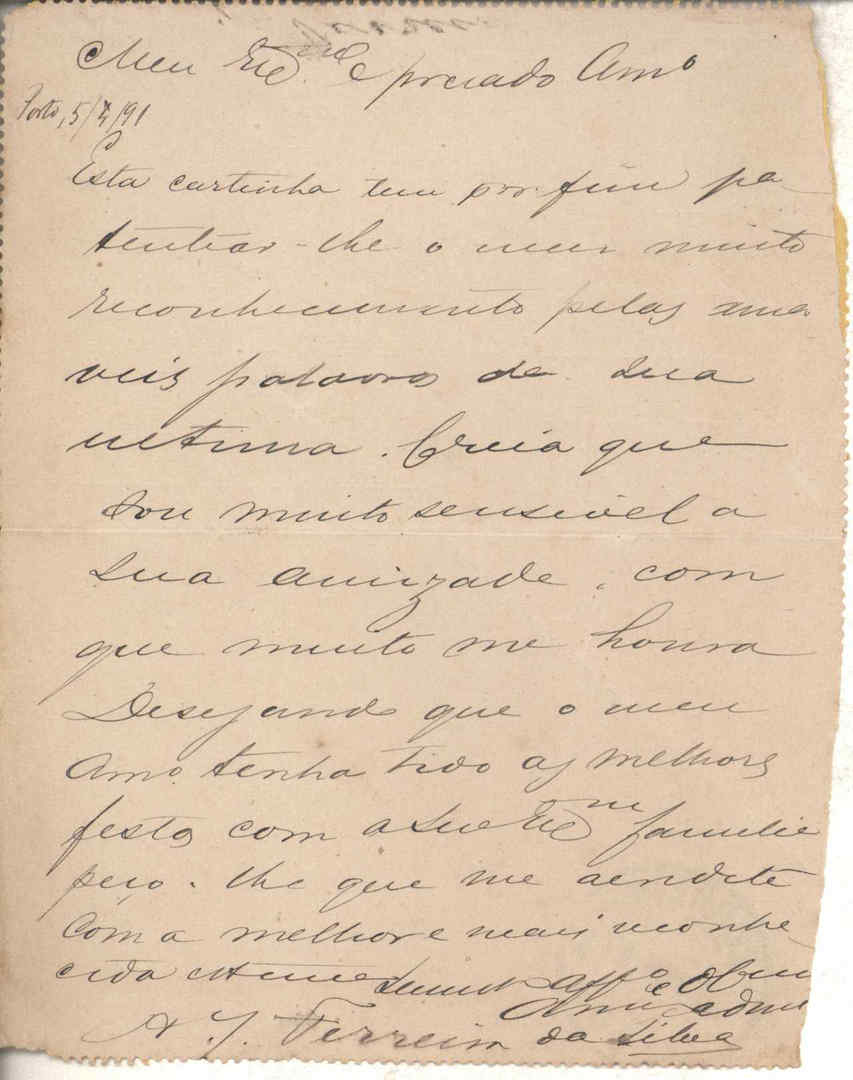 Meu Exᵐᵒ e presado Amº
Porto, 5/4/91
Esta cartinha tem por fim pa
tentiar-lhe o meu muito
reconhecimento pelas ama
veis palavras de sua
ultima. Creia que
sou muito sensivel a
sua amizade, com
que muito me honra
Desejando que o meu
Amo. tenha tido as melhores
festas com a sua Exᵐᵃ familia
peço-lhe que me acredite
com a melhor e mais reconhe
cida estima
affº e
A. J. Ferreira da Silva